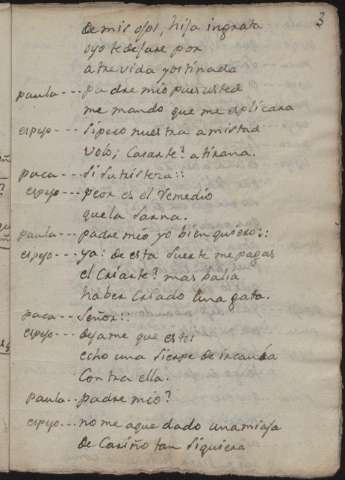 3
de mis ojos, hija ingrata
o yo te dejare por
atrevida y ostinada
paula --- padre mio pues usted
me mando que me esplicara
espejo --- si pero nuestra amistad
voló; Casarte? a tirana.
paca --- si su tristeza::
espejo --- peor es el Remedio
que la sarna.
paula --- padre mio yo bien quisiera::
espejo --- ya: de esta suerte me pagas
el criarte? mas balia
haber Criado una gata.
paca --- Señor::
espejo --- dejame que estoi
echo una sierpe de
Contra ella.
paula -- padre mio?
espejo --- no me a quedado una miaja
de Cariño tan siquiera